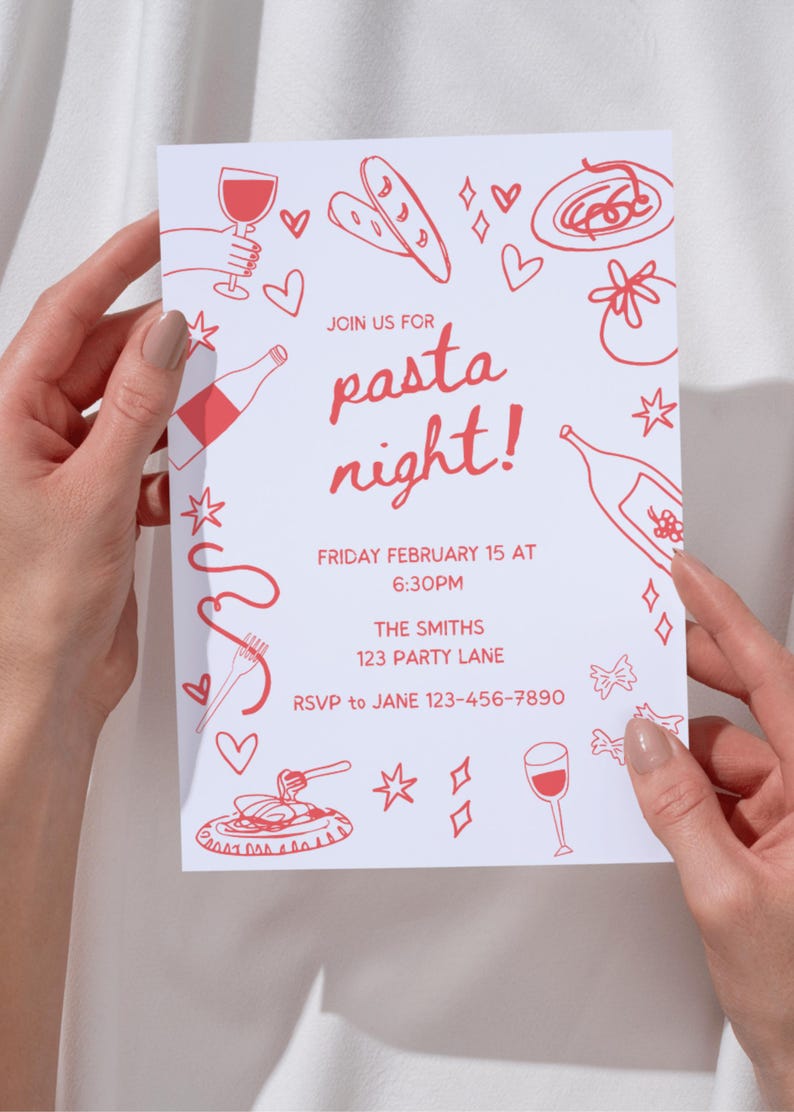 JOIN US FOR
pasta
night!
FRIDAY FEBRUARY 15 AT
6:30PM
THE SMITHS
123 PARTY LANE
RSVP to JANE 123-456-7890